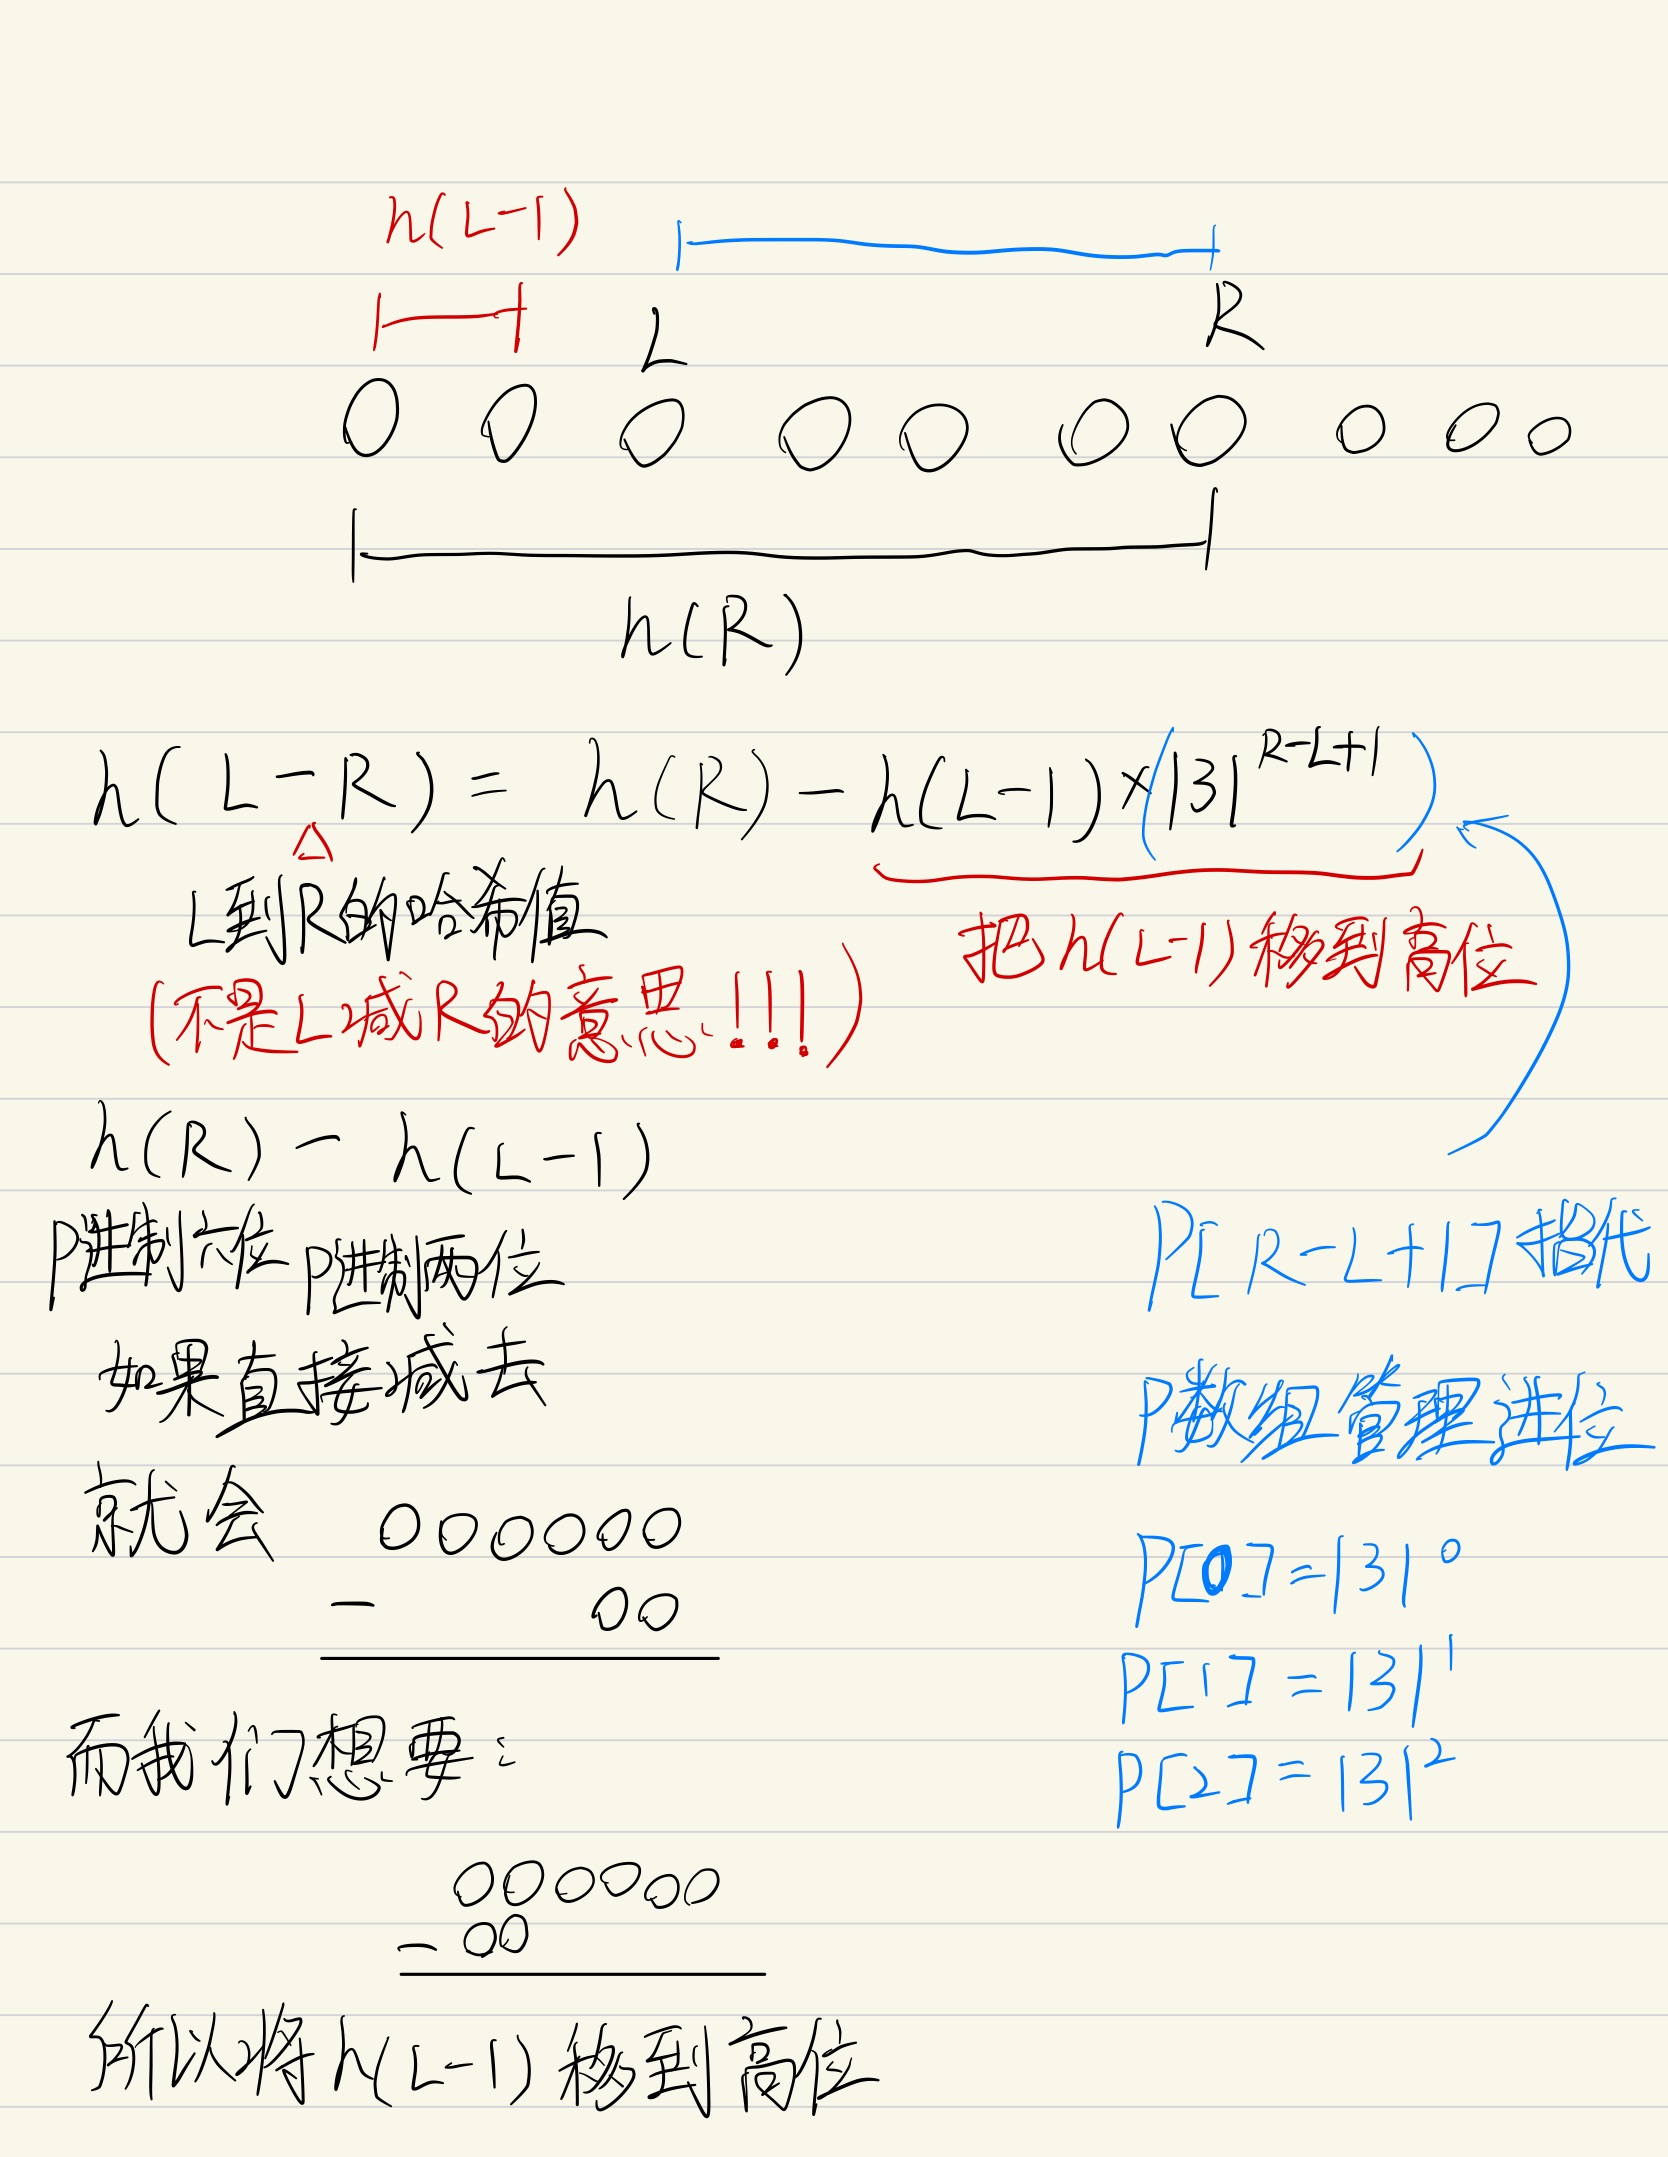 h(L-1)
L
R
0 0 0 0 0 0 0 0 0 0
h(R)
h(L-R) = h(R) - h(L-1)×(131^{R-L+1})
△
L到R的哈希值
(不是L减R的意思!!!)
把h(L-1)移到高位
h(R) - h(L-1)
P进制六位 P进制两位
如果直接减去
就会 000000
- 00
而我们想要:
000000
- 00
所以将h(L-1)移到高位
P[R-L+1]替代
P数组管理进位
P[0]=131^0
P[1]=131^1
P[2]=131^2